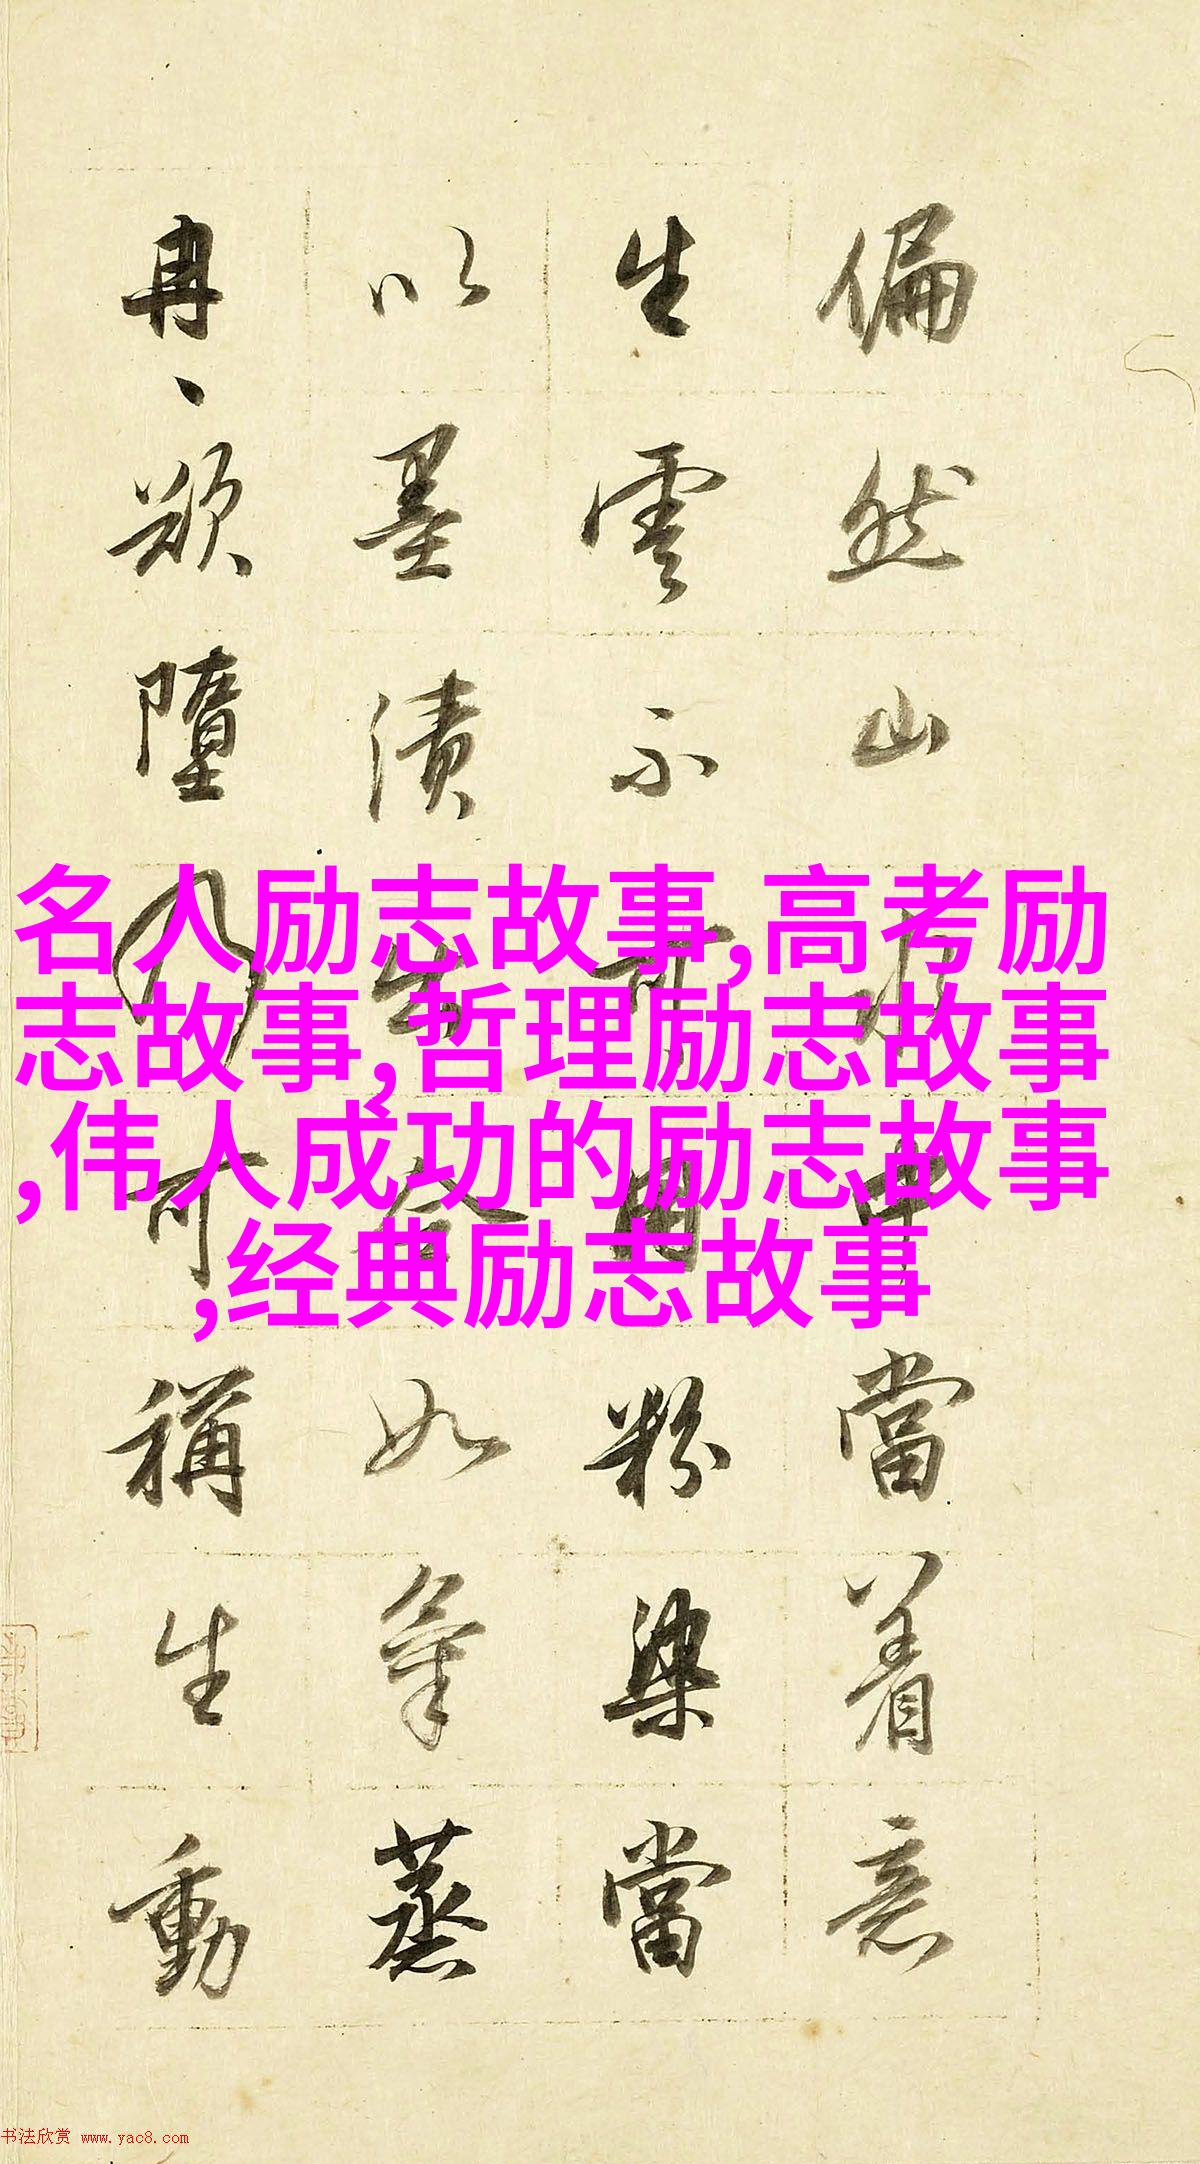 偏然山水中當着意
生雲不可用粉染當
以墨漬出令如氣蒸
冉、欲墮乃可稱生動
名人励志故事,高考励
志故事,哲理励志故事
,伟人成功的励志故事
,经典励志故事
书法欣赏 www.yac8.com